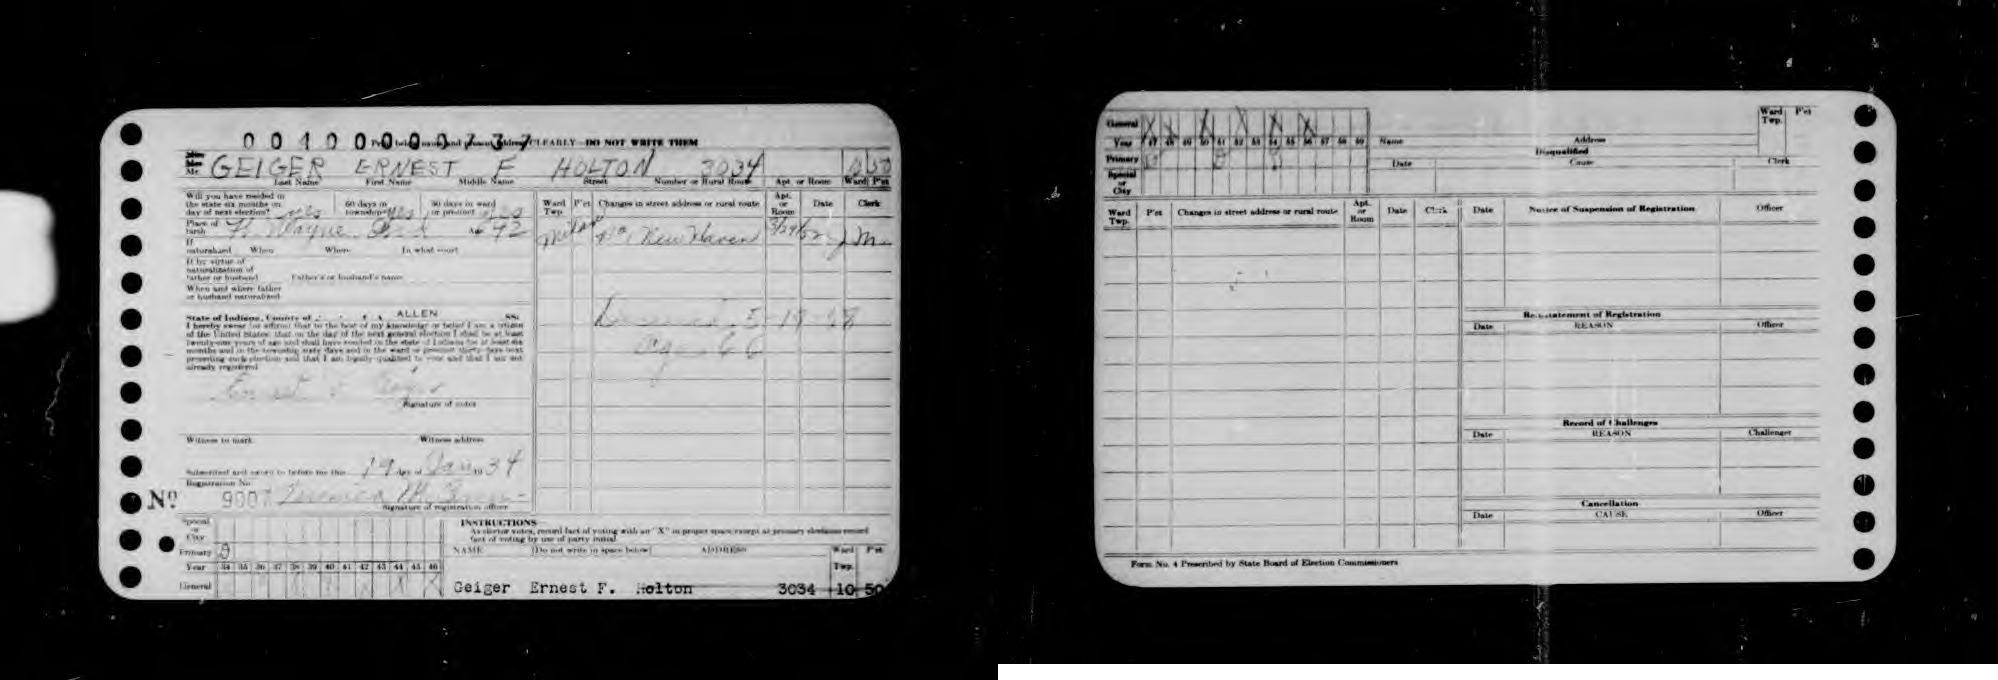 0 0 4 0 0 0 0 0 7 3 7
CLEARLY—DO NOT WRITE THEM
Mr. GEIGER ERNEST F HOLTON 3034 10 50
Last Name First Name Middle Name Street Number or Rural Route Apt. or Room Ward P'ct
Will you have resided in
the state six months on
day of next election? yes
60 days in
township yes
30 days in ward
or precinct yes
Place of
birth Ft. Wayne Ind
If
naturalized When Where In what court
If by virtue of
naturalization of
father or husband Father's or husband's name
When and where father
or husband naturalized
State of Indiana, County of ALLEN SS:
I hereby swear (or affirm) that to the best of my knowledge or belief I am a citizen
of the United States; that on the day of the next general election I shall be at least
twenty-one years of age and shall have resided in the state of Indiana for at least six
months and in the township sixty days and in the ward or precinct thirty days next
preceding such election and that I am legally qualified to vote and that I am not
already registered
Ernest F Geiger
Signature of voter
Witness to mark Witness address
Subscribed and sworn to before me this 19 day of Jan 19 34
Registration No.
No 9007
Signature of registration officer
Ward
Twp. P'ct Changes in street address or rural route Apt.
or
Room Date Clerk
New Haven 3/29/52 M
Deceased 5-19-58
age 66
Special
or
City
Primary
Year 34 35 36 37 38 39 40 41 42 43 44 45 46
General X X
INSTRUCTIONS
As elector votes, record fact of voting with an "X" in proper space except at primary elections record
fact of voting by use of party initial.
NAME (Do not write in space below) ADDRESS Ward
Twp. P'ct
Geiger Ernest F. Holton 3034 10 50
General X X X X X X
Year 47 48 49 50 51 52 53 54 55 56 57 58 59
Primary
Special
or
City
Name Address
Ward
Twp. P'ct
Disqualified
Date Cause Clerk
Ward
Twp. P'ct Changes in street address or rural route Apt.
or
Room Date Clerk
Date Notice of Suspension of Registration Officer
Reinstatement of Registration
Date REASON Officer
Record of Challenges
Date REASON Challenger
Cancellation
Date CAUSE Officer
Form No. 4 Prescribed by State Board of Election Commissioners